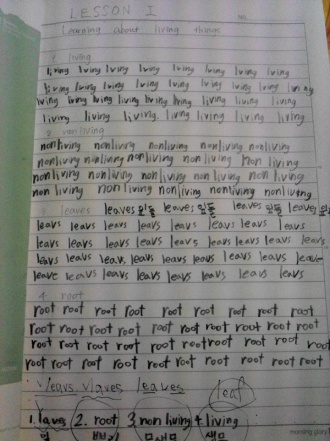 LESSON I
Learning about living things
2 living
living living living living living living living
living living living living living living living living
living living living living living living living living
living living living living living living living
3 nonliving
nonliving nonliving nonliving nonliving nonliving
nonliving nonliving nonliving non living non living
nonliving nonliving nonliving nonliving non living
non living non living nonliving nonliving nonliving
leaves leaves 잎들 leaves 잎들 leaves 잎들 leaves
leavs leavs leavs leavs leavs leavs leavs
leavs leavs leavs leavs leavs leavs leavs
leavs leavs leavs leavs leavs leavs leavs
leave leavs leavs leavs leavs leavs leavs
4. root
root root root root root root root root
root root root root root root root root root
root root root root root root root root root
root root root root root root root root root
leavs vlaves leaves leaf
1. laves 2. root 3. nonliving 4 living
잎 뿌리 무생물 생물
morning glory